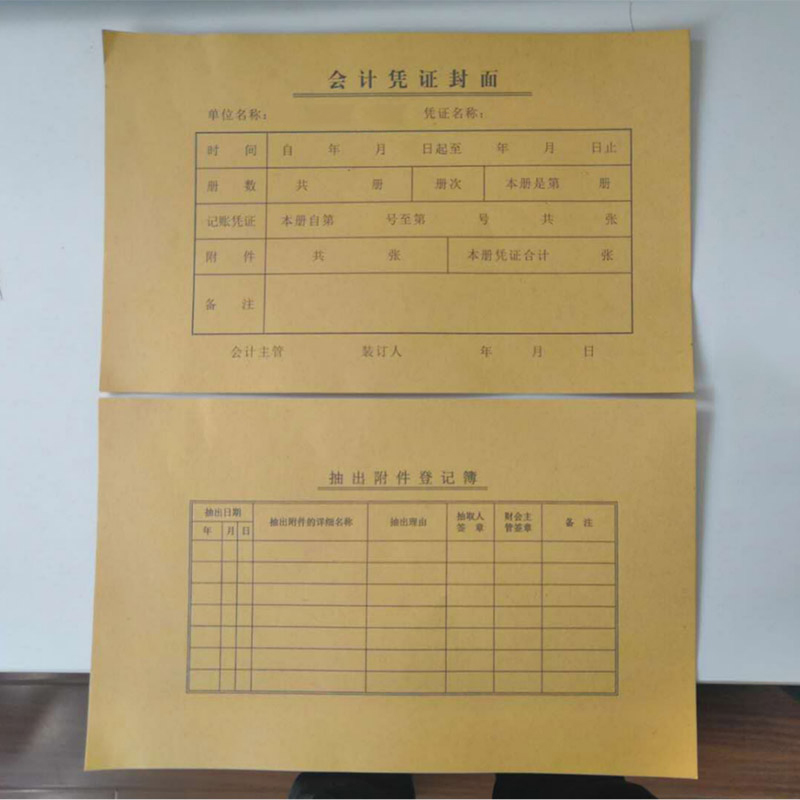 会计凭证封面
单位名称： 凭证名称：
时间 自 年 月 日起至 年 月 日止
册数 共 册 册次 本册是第 册
记账凭证 本册自第 号至第 号 共 张
附件 共 张 本册凭证合计 张
备注
会计主管 装订人 年 月 日
抽出附件登记簿
抽出日期 抽出附件的详细名称 抽出理由 抽取人签章 财会主管签章 备注
年 月 日